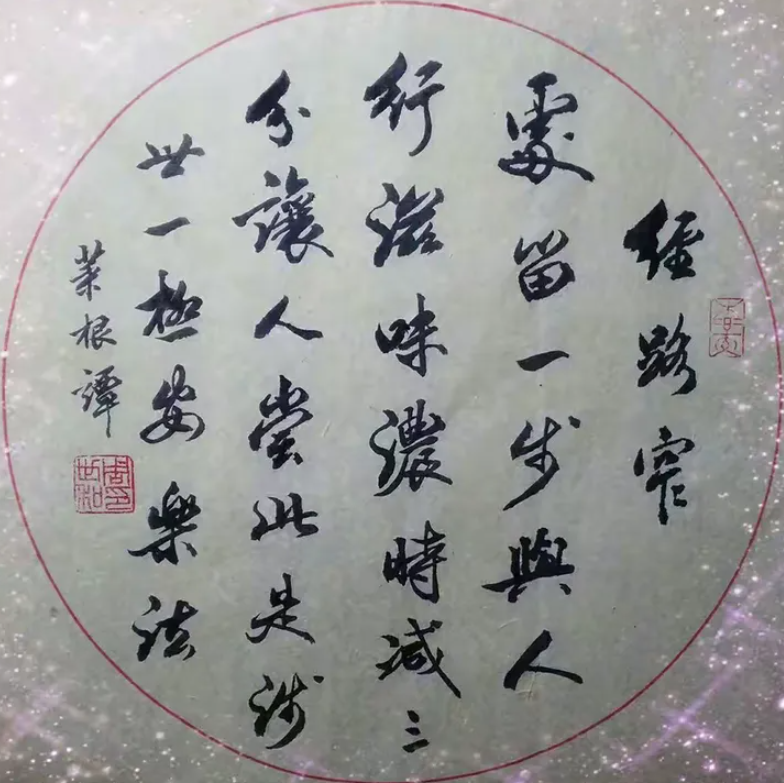 經路窄
處留一步與人
行滋味濃時減三
分讓人嘗此是涉
世一極安樂法
菜根譚